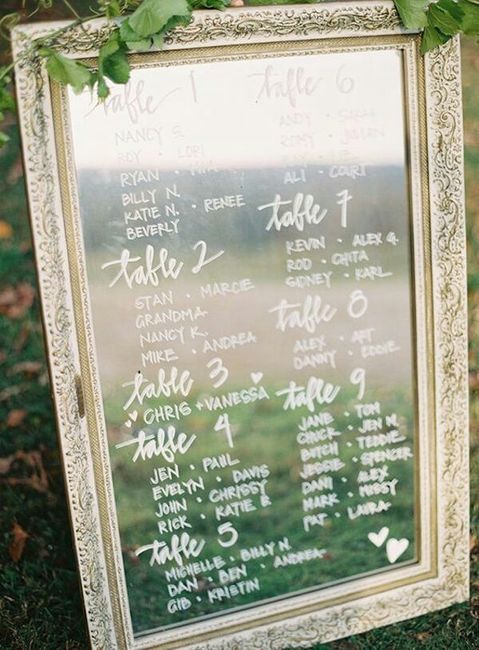 table 1
NANCY S.
ROY · LORI
RYAN ·
BILLY N.
KATIE N. · RENEE
BEVERLY
table 2
STAN · MARCIE
GRANDMA
NANCY K.
MIKE · ANDREA
table 3
CHRIS + VANESSA
table 4
JEN · PAUL
EVELYN · DAVIS
JOHN · CHRISSY
RICK · KATIE B
table 5
MICHELLE · BILLY N.
DAN · BEN · ANDREA
GIB · KRISTIN
table 6
ANDY · SARAH
ROMY ·
ALI · COURT
table 7
KEVIN · ALEX G.
ROD · CHITA
SIDNEY · KARL
table 8
ALEX · ART
DANNY · EDDIE
table 9
JANE · TOM
CHUCK · JEN W.
BUTCH · TEDDIE
JESSIE · SPENCER
DANI · ALEX
MARK · MISSY
PAT · LAURA